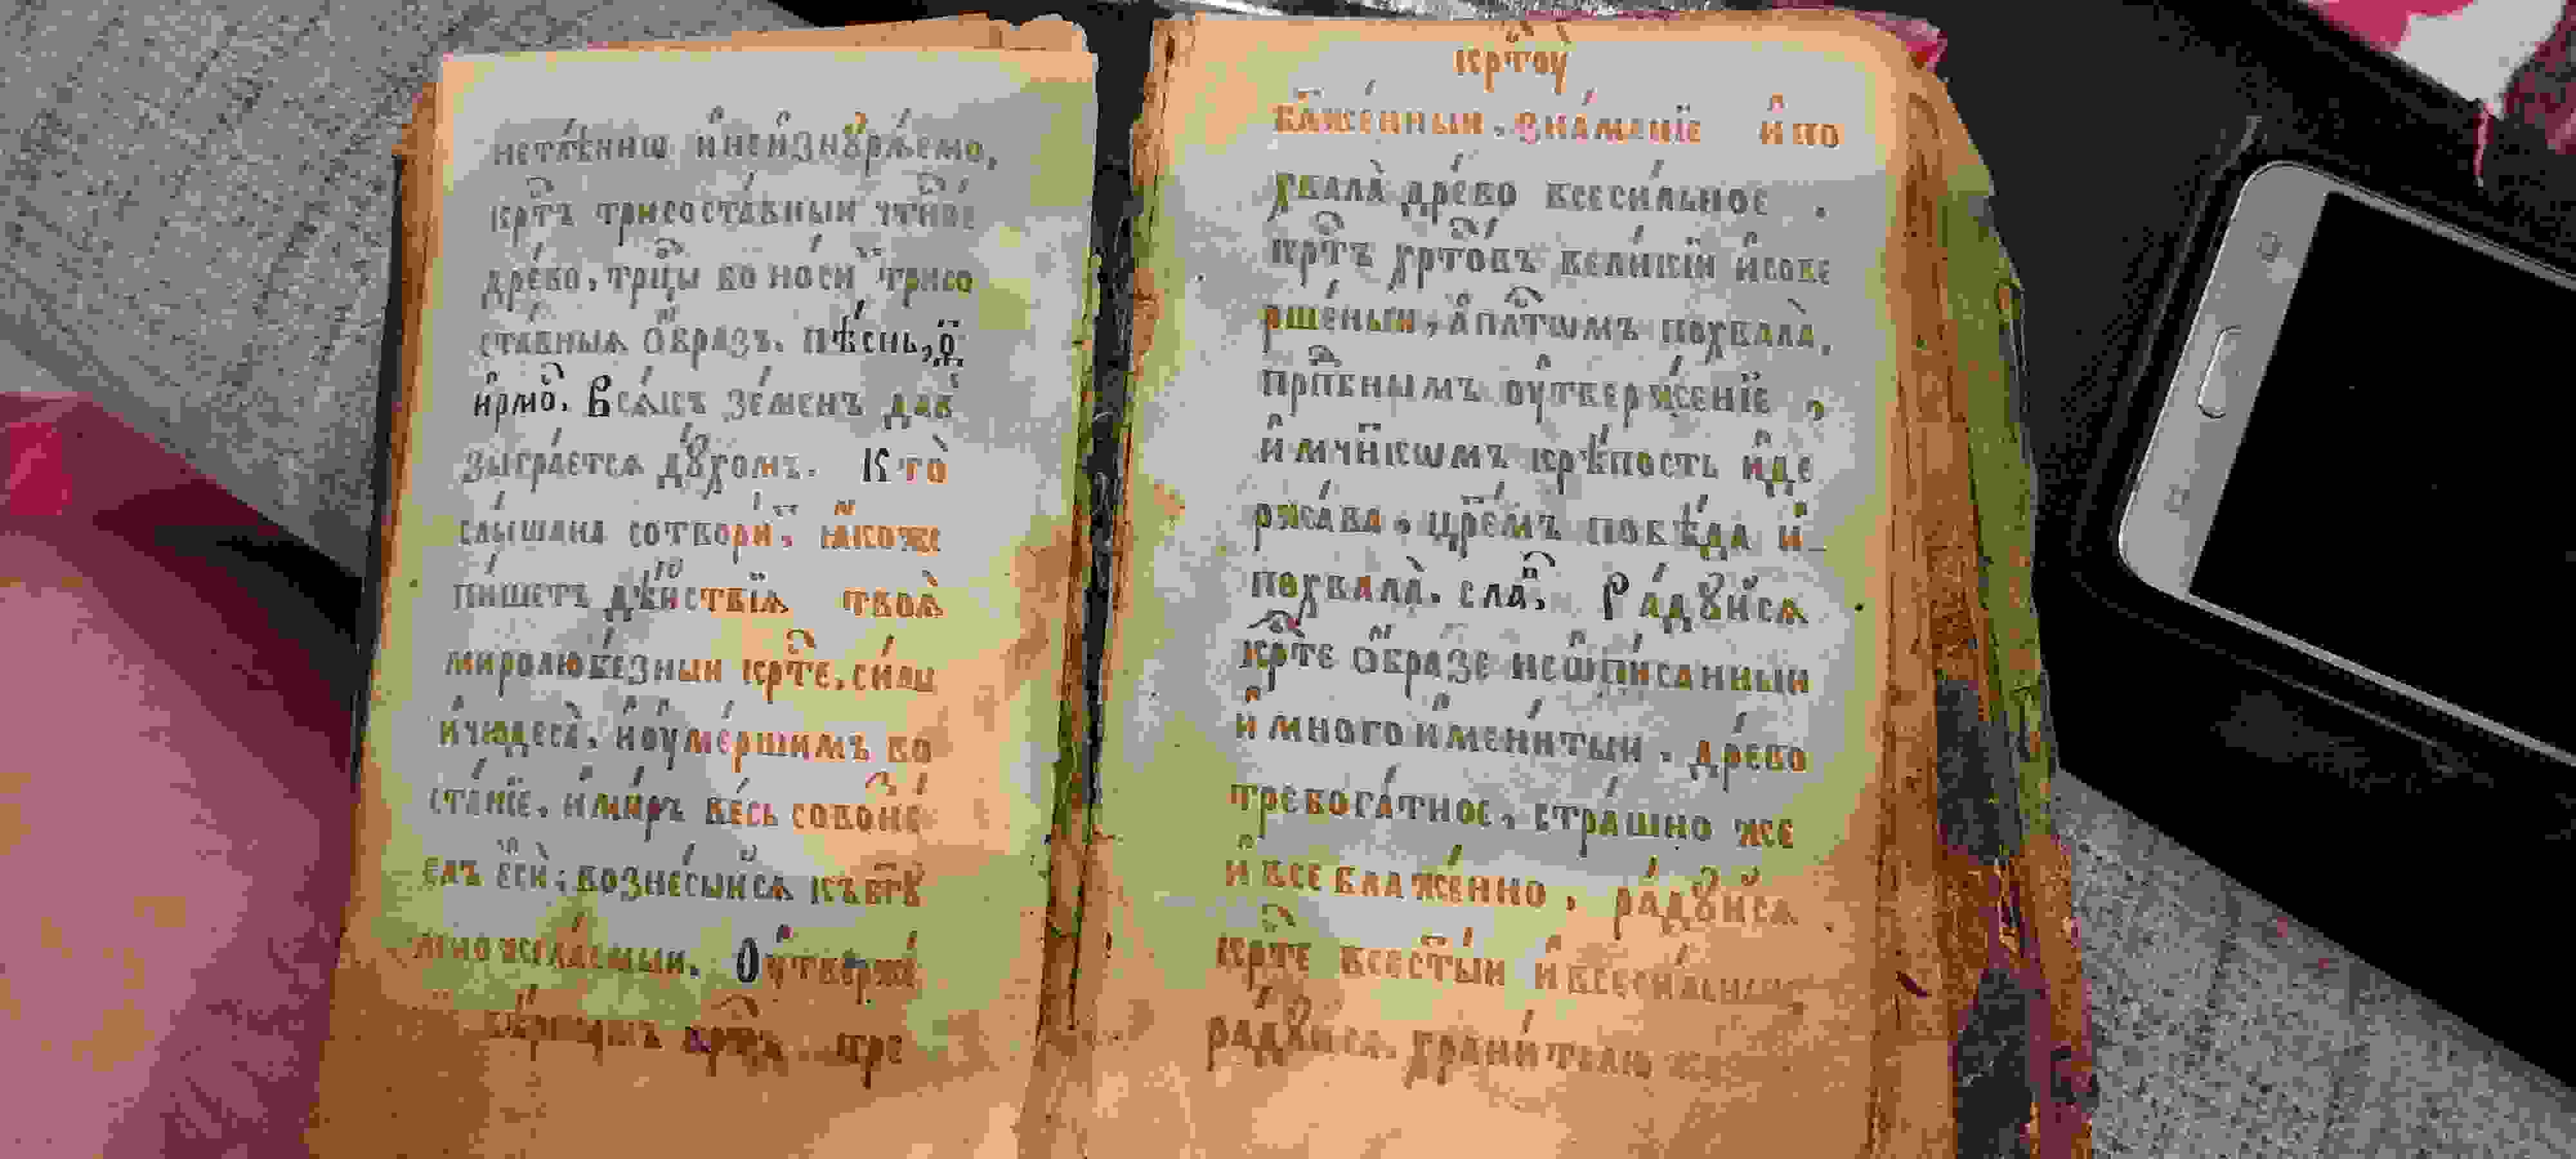 нетлѣннѡ и҆неи҆знꙋрѧ́емо,
крⷭ҇тъ трисоста́вныи чтⷭ҇но́е
дре́во, трⷪ҇цы бо но́си̏ трисо
ста́вныѧ ѻ҆́браз̾. пѣ́снь, ѳ҃.
и҆рмо́ⷭ. Всѧ́къ зе́менъ да в̾
зыгра́етсѧ дꙋ́хомъ. Кто̀
слы́шана сотвори́тъ, ꙗ҆́коже
пи́шетъ дѣ́йствїѧ твоѧ̀
миролюбе́зныи крⷭ҇те, си́лы
и҆чюдеса̀, и҆ оу҆ме́ршимъ во
ста́нїе, и҆ ми́ръ ве́сь совозне́
слъ є҆сѝ, вознесы́йсѧ къ бг҃ꙋ
многожела́емыи. Оу҆твержє́
крⷭ҇тъ пре
крⷭ҇тоу
бл҃же́нныи, зна́менїе и҆ по
хвала̀ дре́во всеси́льное.
крⷭ҇тъ хрⷭ҇то́въ вели́кїи и҆ сове
рше́ныи, а҆пⷭ҇лтѡмъ похвала̀,
прпⷣбнымъ оу҆твержє́нїе,
и҆ мч҃нкѡмъ крѣ́пость и҆ де
ржа́ва, цр҃е́мъ побѣ́да и҆
похвала̀. сла́ⷡ. Ра́дꙋйсѧ
крⷭ҇те ѻ҆́бразе неѡ҆пи́санныи
и҆ многои҆мени́тыи. дре́во
требога́тное, стра́шно же
и҆ всеблаже́нно, ра́дꙋйсѧ
крⷭ҇те всест҃ы́и и҆ всеси́льныи,
ра́дꙋйсѧ. храни́телю